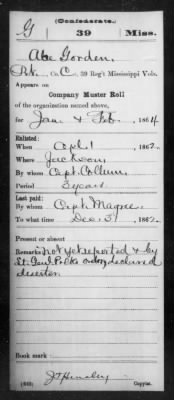 (Confederate.)
G 39 Miss.
Abe Gorden
Pvt., Co. C, 39 Reg't Mississippi Vols.
Appears on
Company Muster Roll
of the organization named above,
for Jan & Feb, 1864
Enlisted:
When Apl 1, 1862
Where Jackson
By whom Capt. Collum
Period 3 years
Last paid:
By whom Capt. Magee
To what time Dec. 31, 1862
Present or absent
Remarks: not yet reported & by
Lt. Genl Polks order declared
deserter
Book mark:
J T Hensley
Copyist.